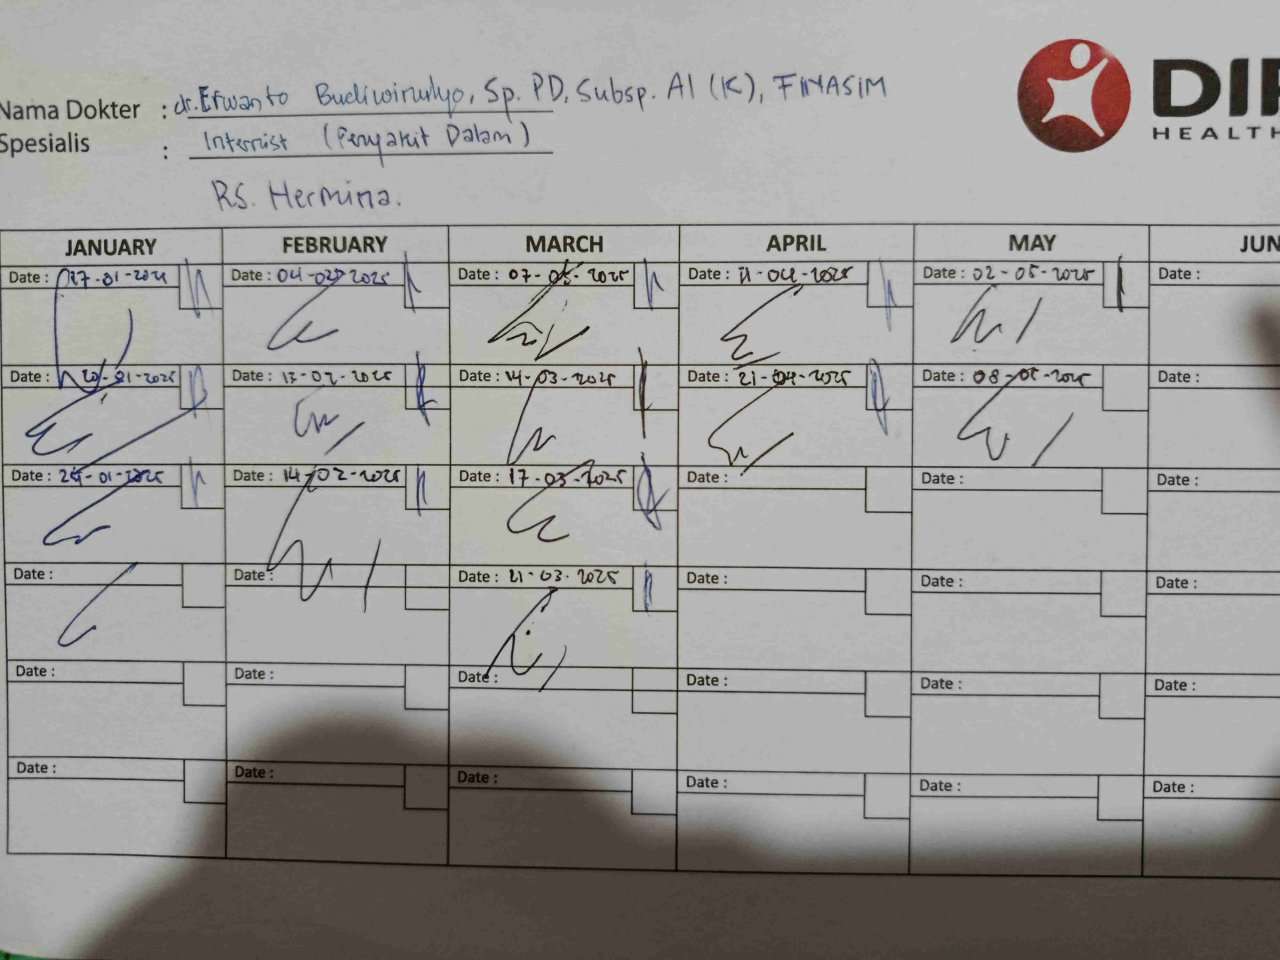 Nama Dokter : dr. Erwanto Budiwinulyo, Sp. PD, Subsp. AI (K), FINASIM
DI
HEALTH
Spesialis : Internist (Penyakit Dalam)
RS. Hermina.
JANUARY FEBRUARY MARCH APRIL MAY JUN
Date : 17-01-202 Date : 04-02-2025 Date : 07-03-2025 Date : 11-04-2025 Date : 02-05-2025 Date :
Date : 20-01-2025 Date : 13-02-2025 Date : 14-03-2025 Date : 21-04-2025 Date : 08-05-2025 Date :
Date : 24-01-2025 Date : 14-02-2025 Date : 17-03-2025 Date : Date : Date :
Date : Date : Date : 21-03-2025 Date : Date : Date :
Date : Date : Date : Date : Date : Date :
Date : Date : Date : Date : Date : Date :